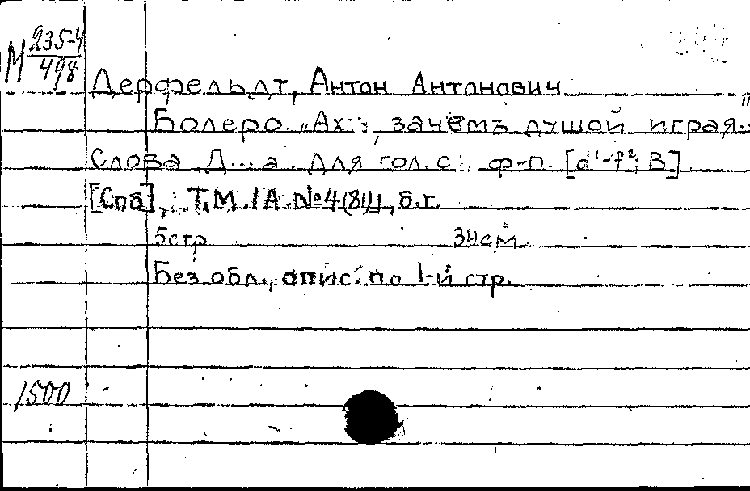 М 235-4
498
Дерфельдт, Антон Антонович
Болеро „Ах", зачемъ душой играя..
Слова Д...а. Для гол. с ф-п. [d¹-f²; B]
[Спб], Т.М. /А №4(81)/, б.г.
5стр 34см.
Без обл., опис. по 1-й стр.
1500